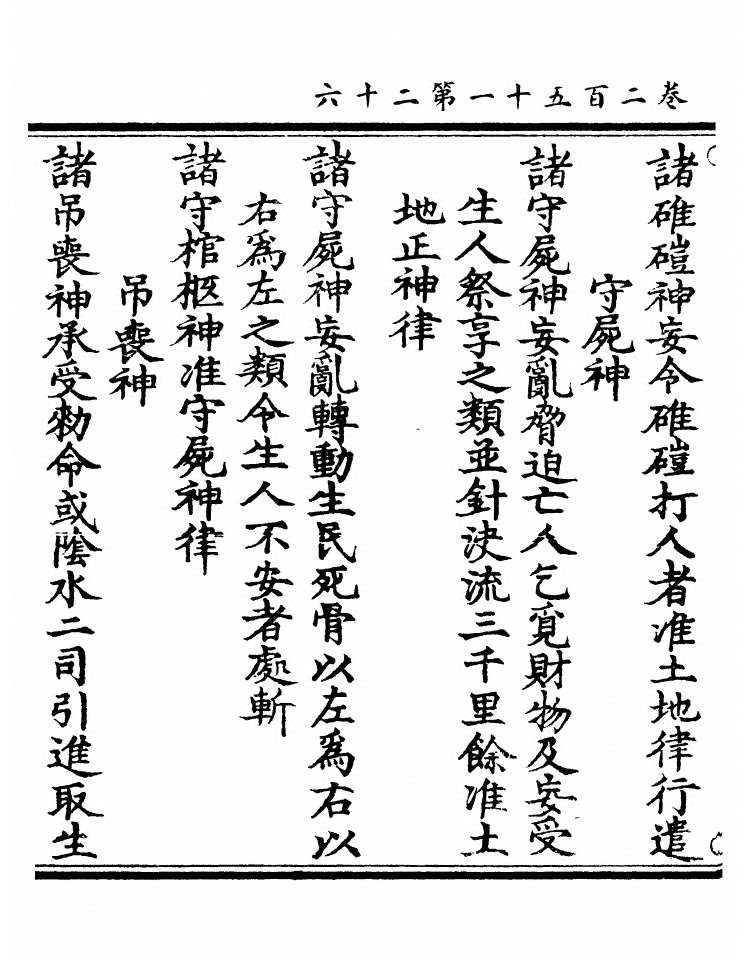 卷二百五十一第二十六
諸碓磑神妄令碓磑打人者准土地律行遣
守屍神
諸守屍神妄亂脅迫亡人乞覓財物及妄受
生人祭享之類並針決流三千里餘准土
地正神律
諸守屍神妄亂轉動生民死骨以左爲右以
右爲左之類令生人不安者處斬
諸守棺柩神准守屍神律
吊喪神
諸吊喪神承受勑命或陰水二司引進取生